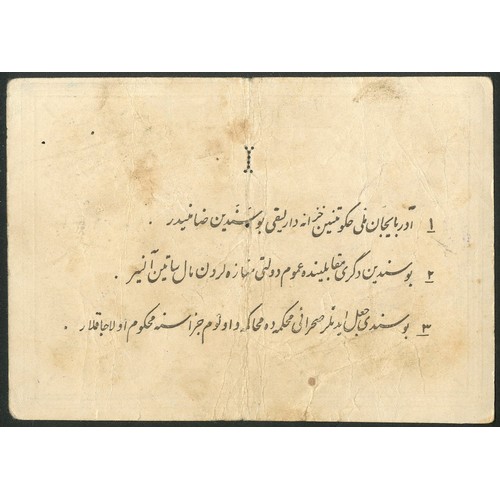 ۱ آذربایجان ملی حکومتینین خزانه داریلقی بو سَنَدین ضامنیدر .
۲ بو سندین دگری مقابلینده عموم دولتی مغازه لردن مال ساتین آلنیر .
۳ بو سندی جعل ایدنلر صحرائی محکمه ده محاکمه و اولوم جزاسنه محکوم اولاجاقلار .